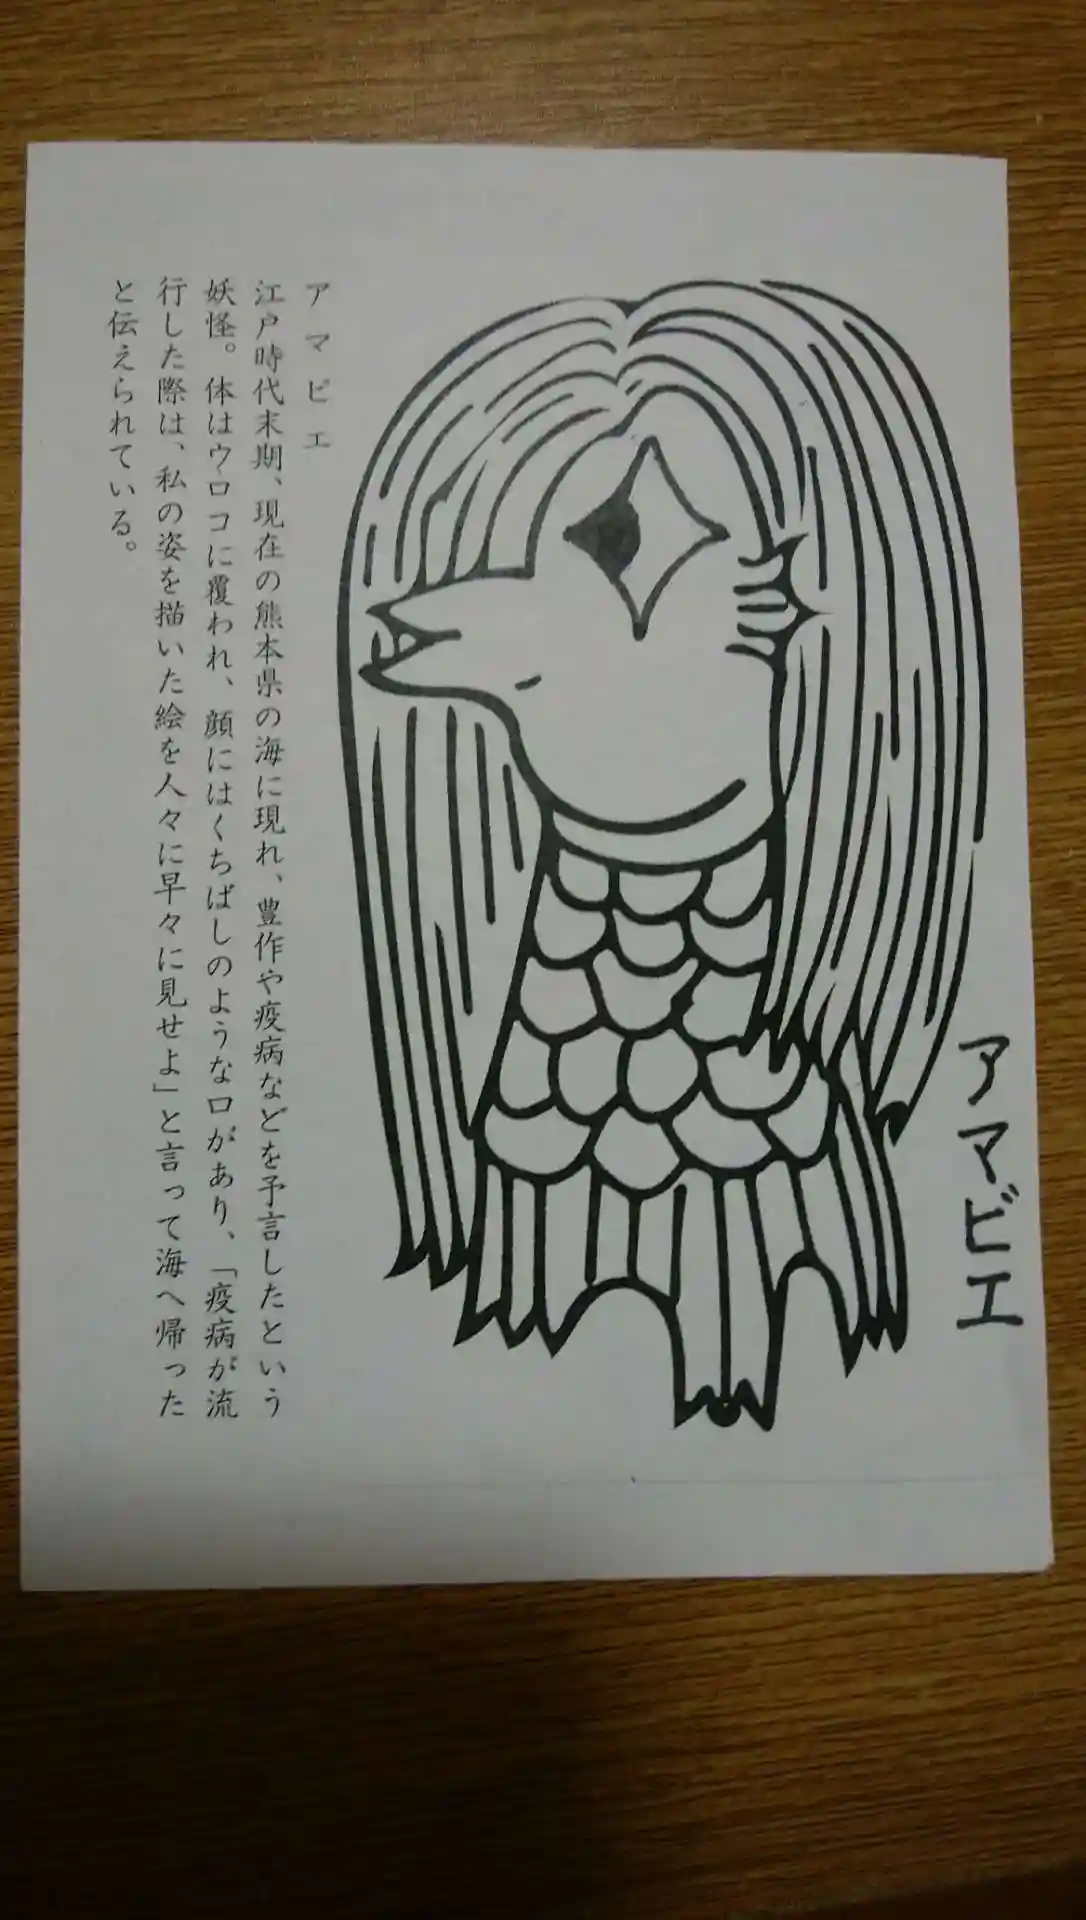 アマビエ
アマビエ
江戸時代末期、現在の熊本県の海に現れ、豊作や疫病などを予言したという
妖怪。体はウロコに覆われ、顔にはくちばしのような口があり、「疫病が流
行した際は、私の姿を描いた絵を人々に早々に見せよ」と言って海へ帰った
と伝えられている。